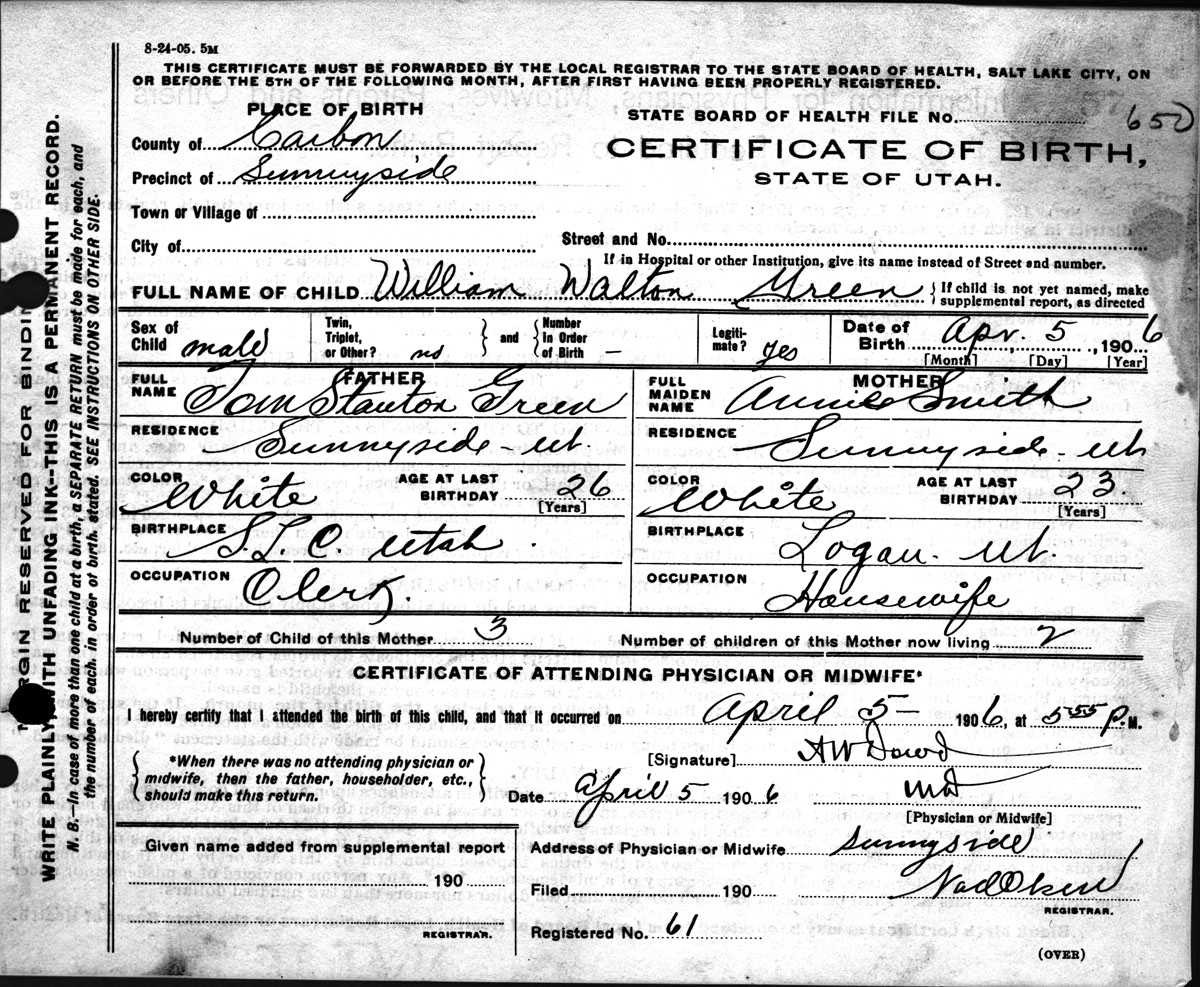 8-24-05. 5M
THIS CERTIFICATE MUST BE FORWARDED BY THE LOCAL REGISTRAR TO THE STATE BOARD OF HEALTH, SALT LAKE CITY, ON
OR BEFORE THE 5TH OF THE FOLLOWING MONTH, AFTER FIRST HAVING BEEN PROPERLY REGISTERED.
PLACE OF BIRTH
County of Carbon
Precinct of Sunnyside
Town or Village of
City of
STATE BOARD OF HEALTH FILE No. 650
CERTIFICATE OF BIRTH,
STATE OF UTAH.
Street and No.
If in Hospital or other Institution, give its name instead of Street and number.
FULL NAME OF CHILD William Walton Green { If child is not yet named, make
supplemental report, as directed
Sex of Child male
Twin, Triplet, or Other? no } and { Number in Order of Birth –
Legitimate? yes
Date of Birth Apr. 5, 1906
[Month] [Day] [Year]
FATHER
FULL NAME Tom Stanton Green
RESIDENCE Sunnyside - ut.
COLOR White AGE AT LAST BIRTHDAY 26
[Years]
BIRTHPLACE S.L.C. Utah.
OCCUPATION Clerk.
MOTHER
FULL MAIDEN NAME Annie Smith
RESIDENCE Sunnyside - ut
COLOR White AGE AT LAST BIRTHDAY 23.
[Years]
BIRTHPLACE Logan - Ut.
OCCUPATION Housewife
Number of Child of this Mother 3 Number of children of this Mother now living 2
CERTIFICATE OF ATTENDING PHYSICIAN OR MIDWIFE*
I hereby certify that I attended the birth of this child, and that it occurred on April 5 – 1906, at 5 55 P. M.
{ *When there was no attending physician or
midwife, then the father, householder, etc.,
should make this return. }
[Signature] A W Dowd
Date April 5 1906 MD
[Physician or Midwife]
Given name added from supplemental report
190
REGISTRAR.
Address of Physician or Midwife Sunnyside
Filed 190
REGISTRAR.
Registered No. 61
(OVER)
MARGIN RESERVED FOR BINDING
WRITE PLAINLY, WITH UNFADING INK--THIS IS A PERMANENT RECORD.
N. B.—In case of more than one child at a birth, a SEPARATE RETURN must be made for each, and
the number of each, in order of birth, stated. SEE INSTRUCTIONS ON OTHER SIDE.